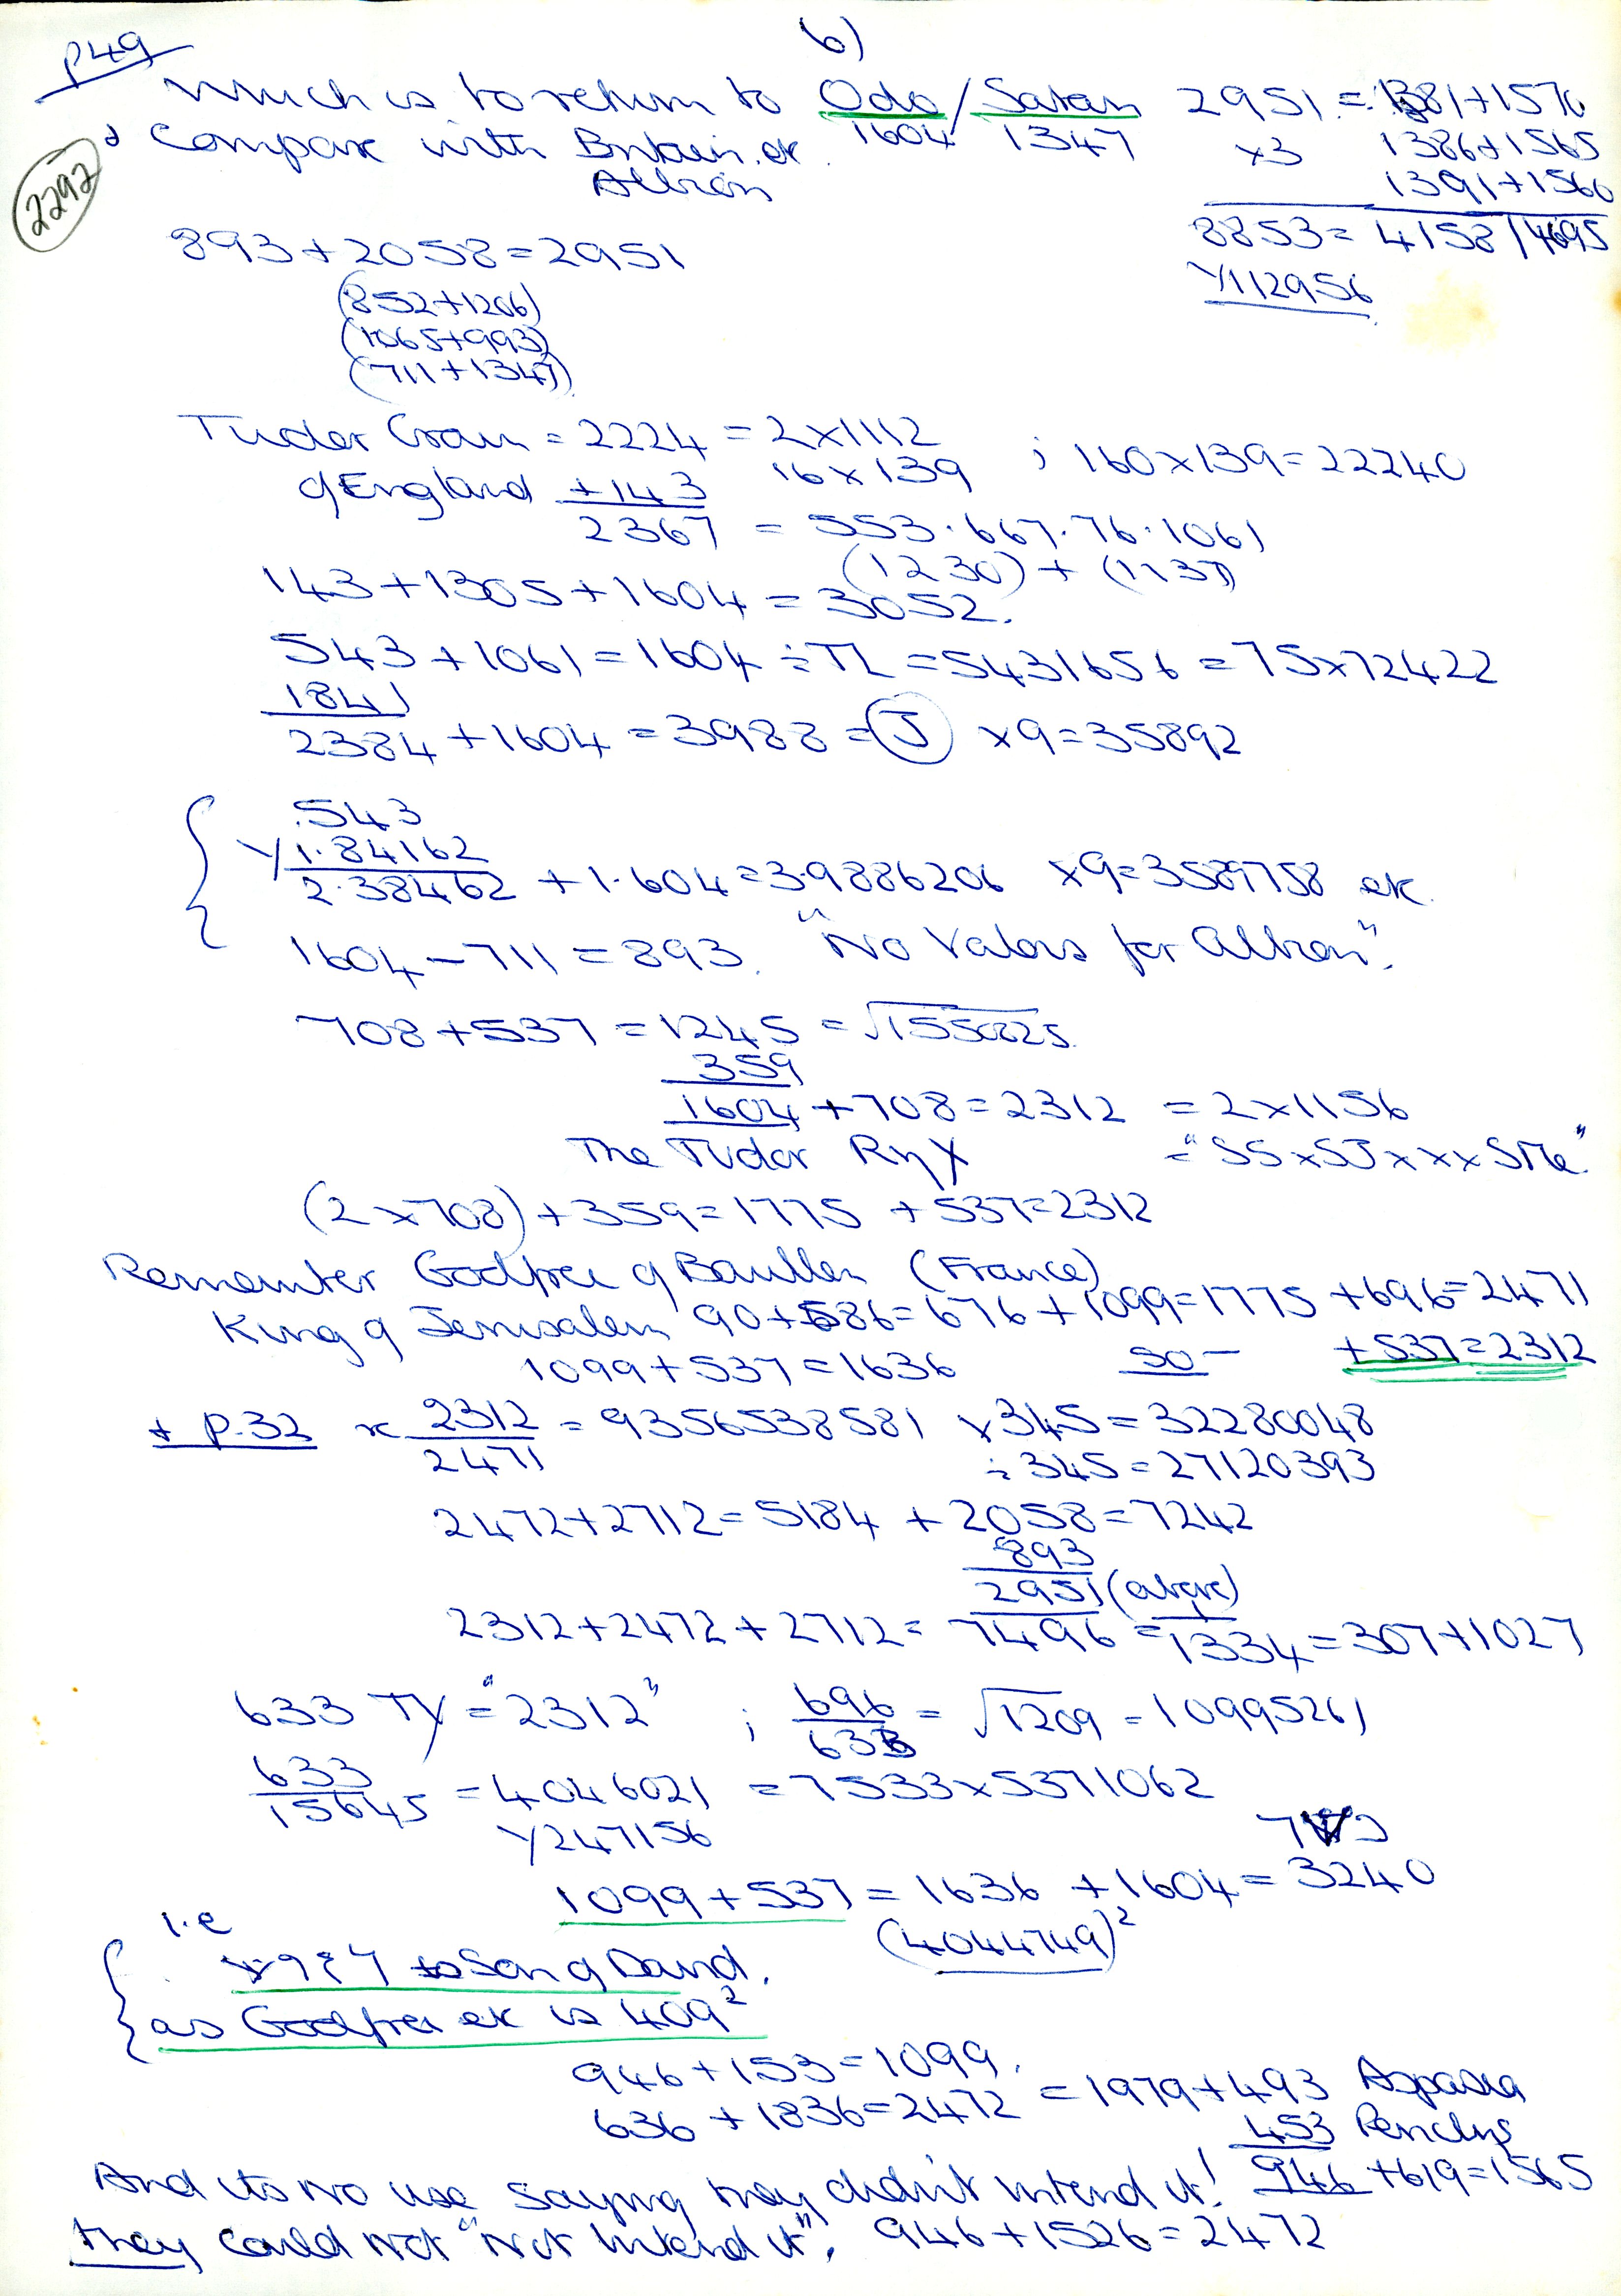 p49
6)
Which is to return to Odo/Satan 2951 = 1381+1570
1604 1347 x3 1386+1565
+ Compare with Britain. etc
Albion 1391+1560
2292
8853 = 4158/4695
Y112956
893+2058=2951
(852+1206)
(1065+993)
(711+1347)
Tudor Crown = 2224 = 2x1112
of England +143 16x139 ; 160x139=22240
2367 = 553.667.76.1061
(1230)+(1137)
143+1305+1604=3052.
543+1061=1604÷TL=5431656=75x72422
1841
2384+1604=3988=J x9=35892
.543
Y1.84162
2.38462+1.604=3.9886206 x9=3589758 etc.
1604-711=893. "No Valors for Albion".
708+537=1245=√1550025.
359
1604+708=2312 = 2x1156
The Tudor = "55x53xxx
(2x708)+359=1775 +537=2312
Remember Godfree of (France)
King of Jerusalem 90+586=676+1099=1775+696=2471
1099+537=1636 50- +537=2312
+ p.32 2312 = 9356538581 x345=32280048
2471 ÷345=27120393
2472+2712=5184+2058=7242
893
2951 (above)
2312+2472+2712=7496=1334=307+1027
633 TY="2312" ; 696 = √1209=10995261
633
633 = 4046021 = 7533x5371062
15645 Y247156
1099+537=1636+1604=3240
(4044749)²
i.e
to Son of David.
as Godfrei etc is 409²
946+153=1099.
636+1836=2472 = 1979+493 Aspasia
453 Pericles
946+619=1565
And its no use saying they didn't intend it!
they could not "Not Intend it". 946+1526=2472